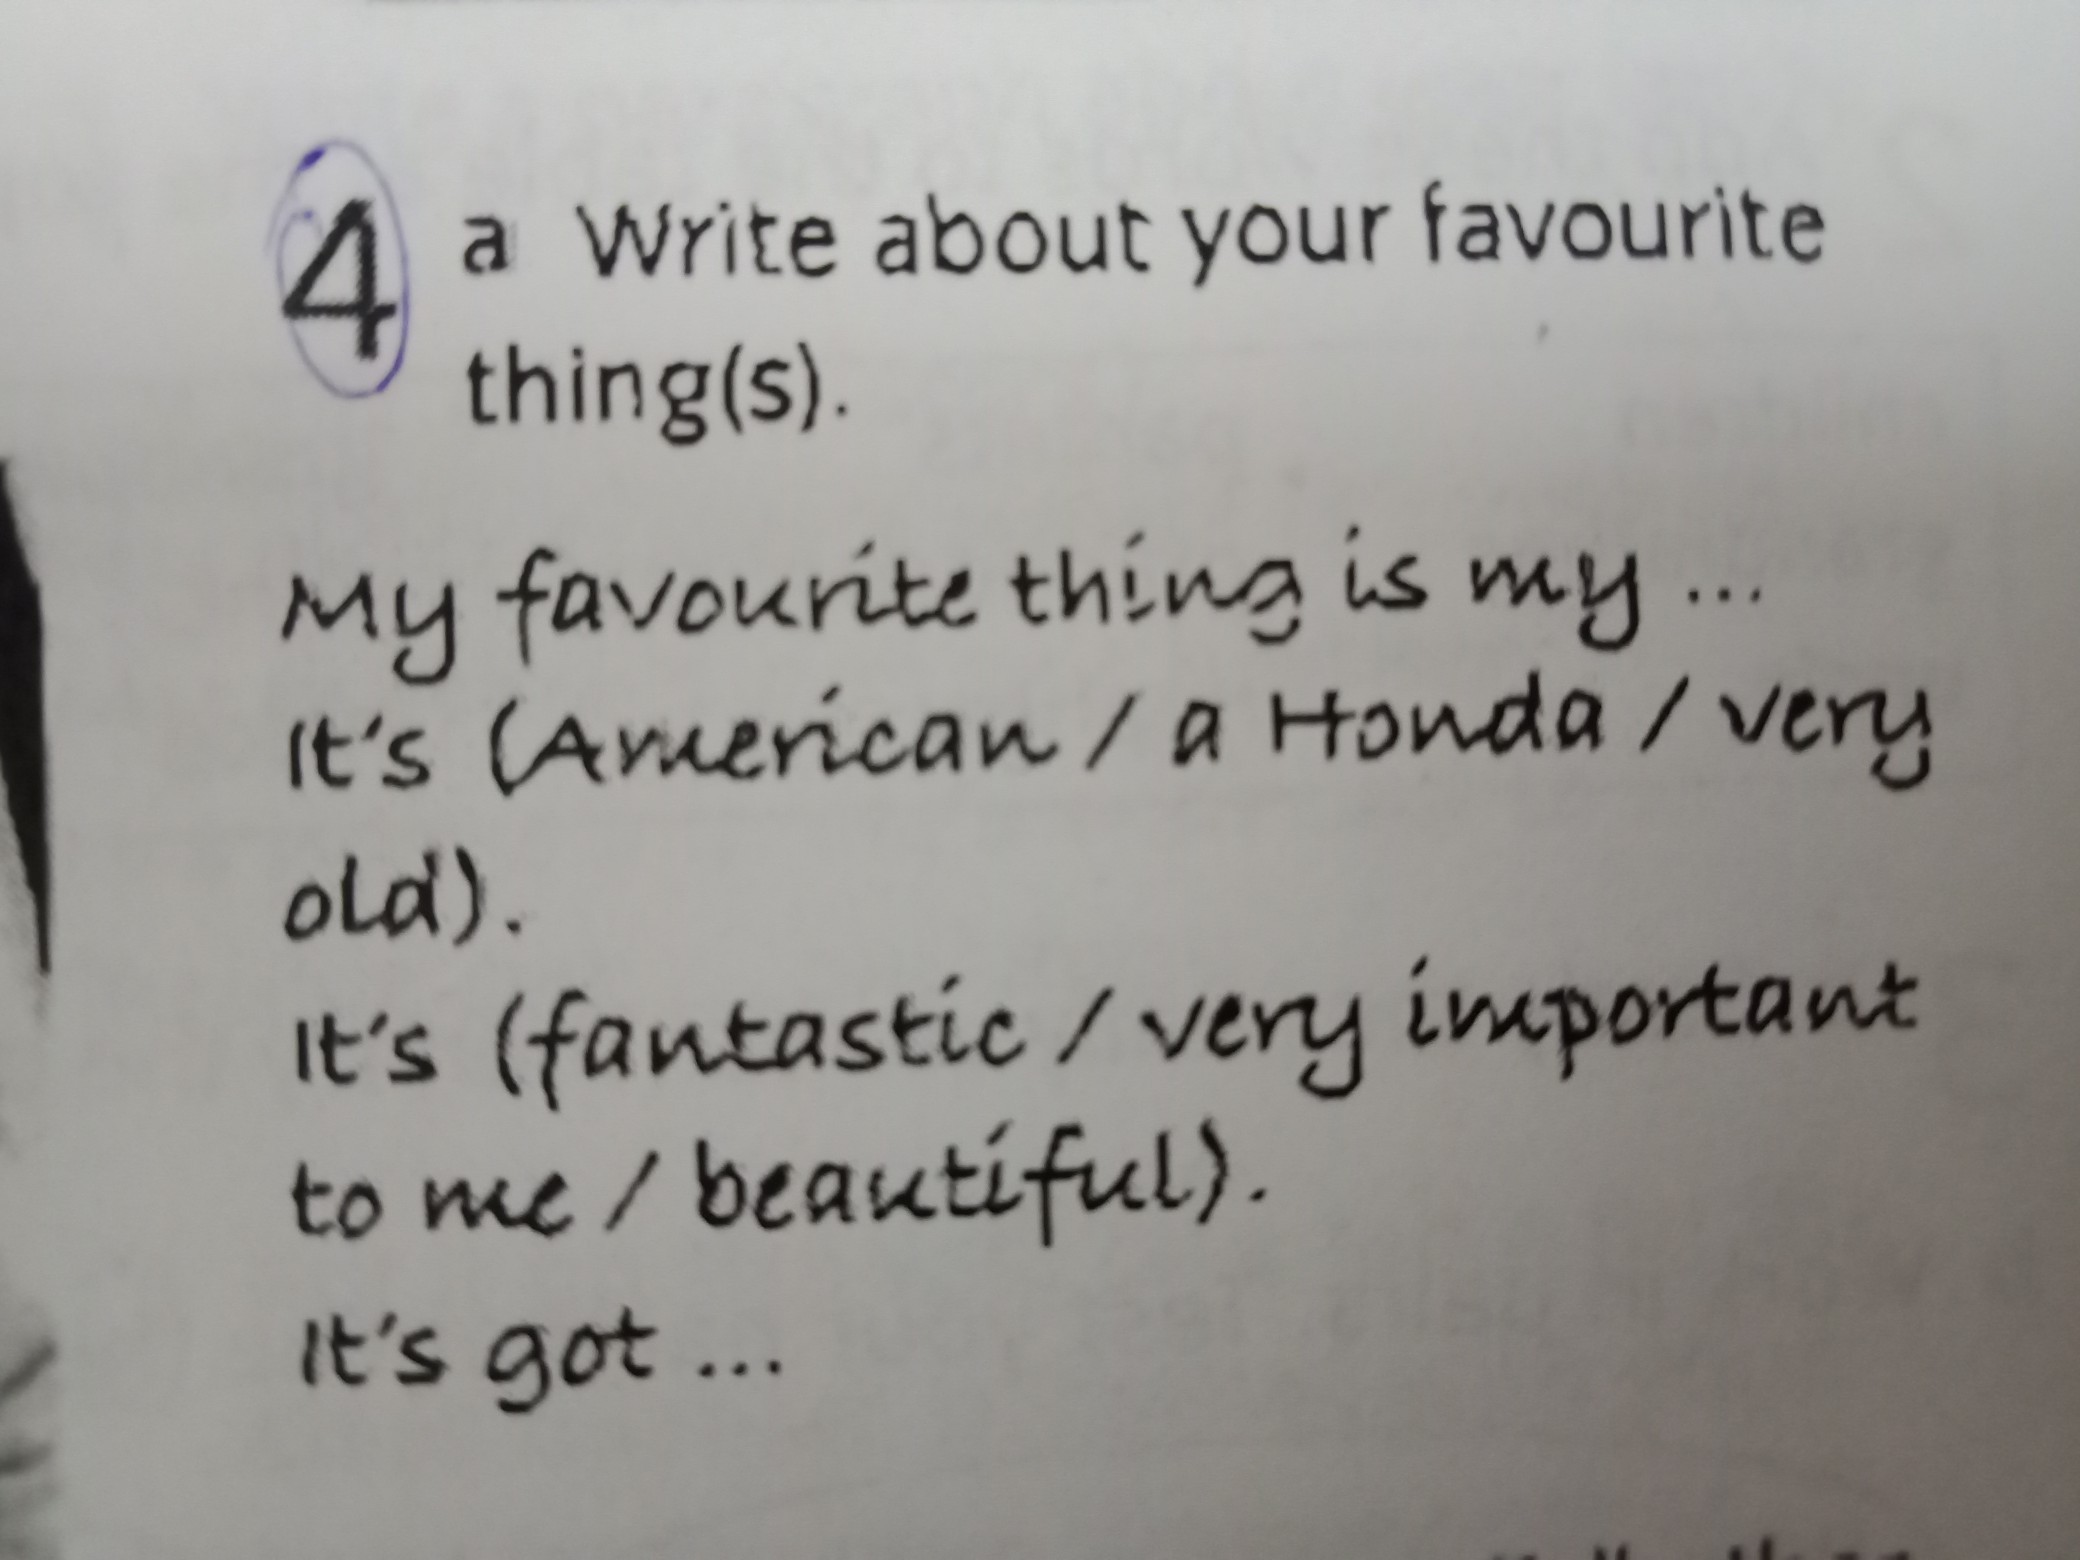 4 a Write about your favourite
thing(s).
My favourite thing is my ...
It's (American / a Honda / very
old).
It's (fantastic / very important
to me / beautiful).
It's got ...